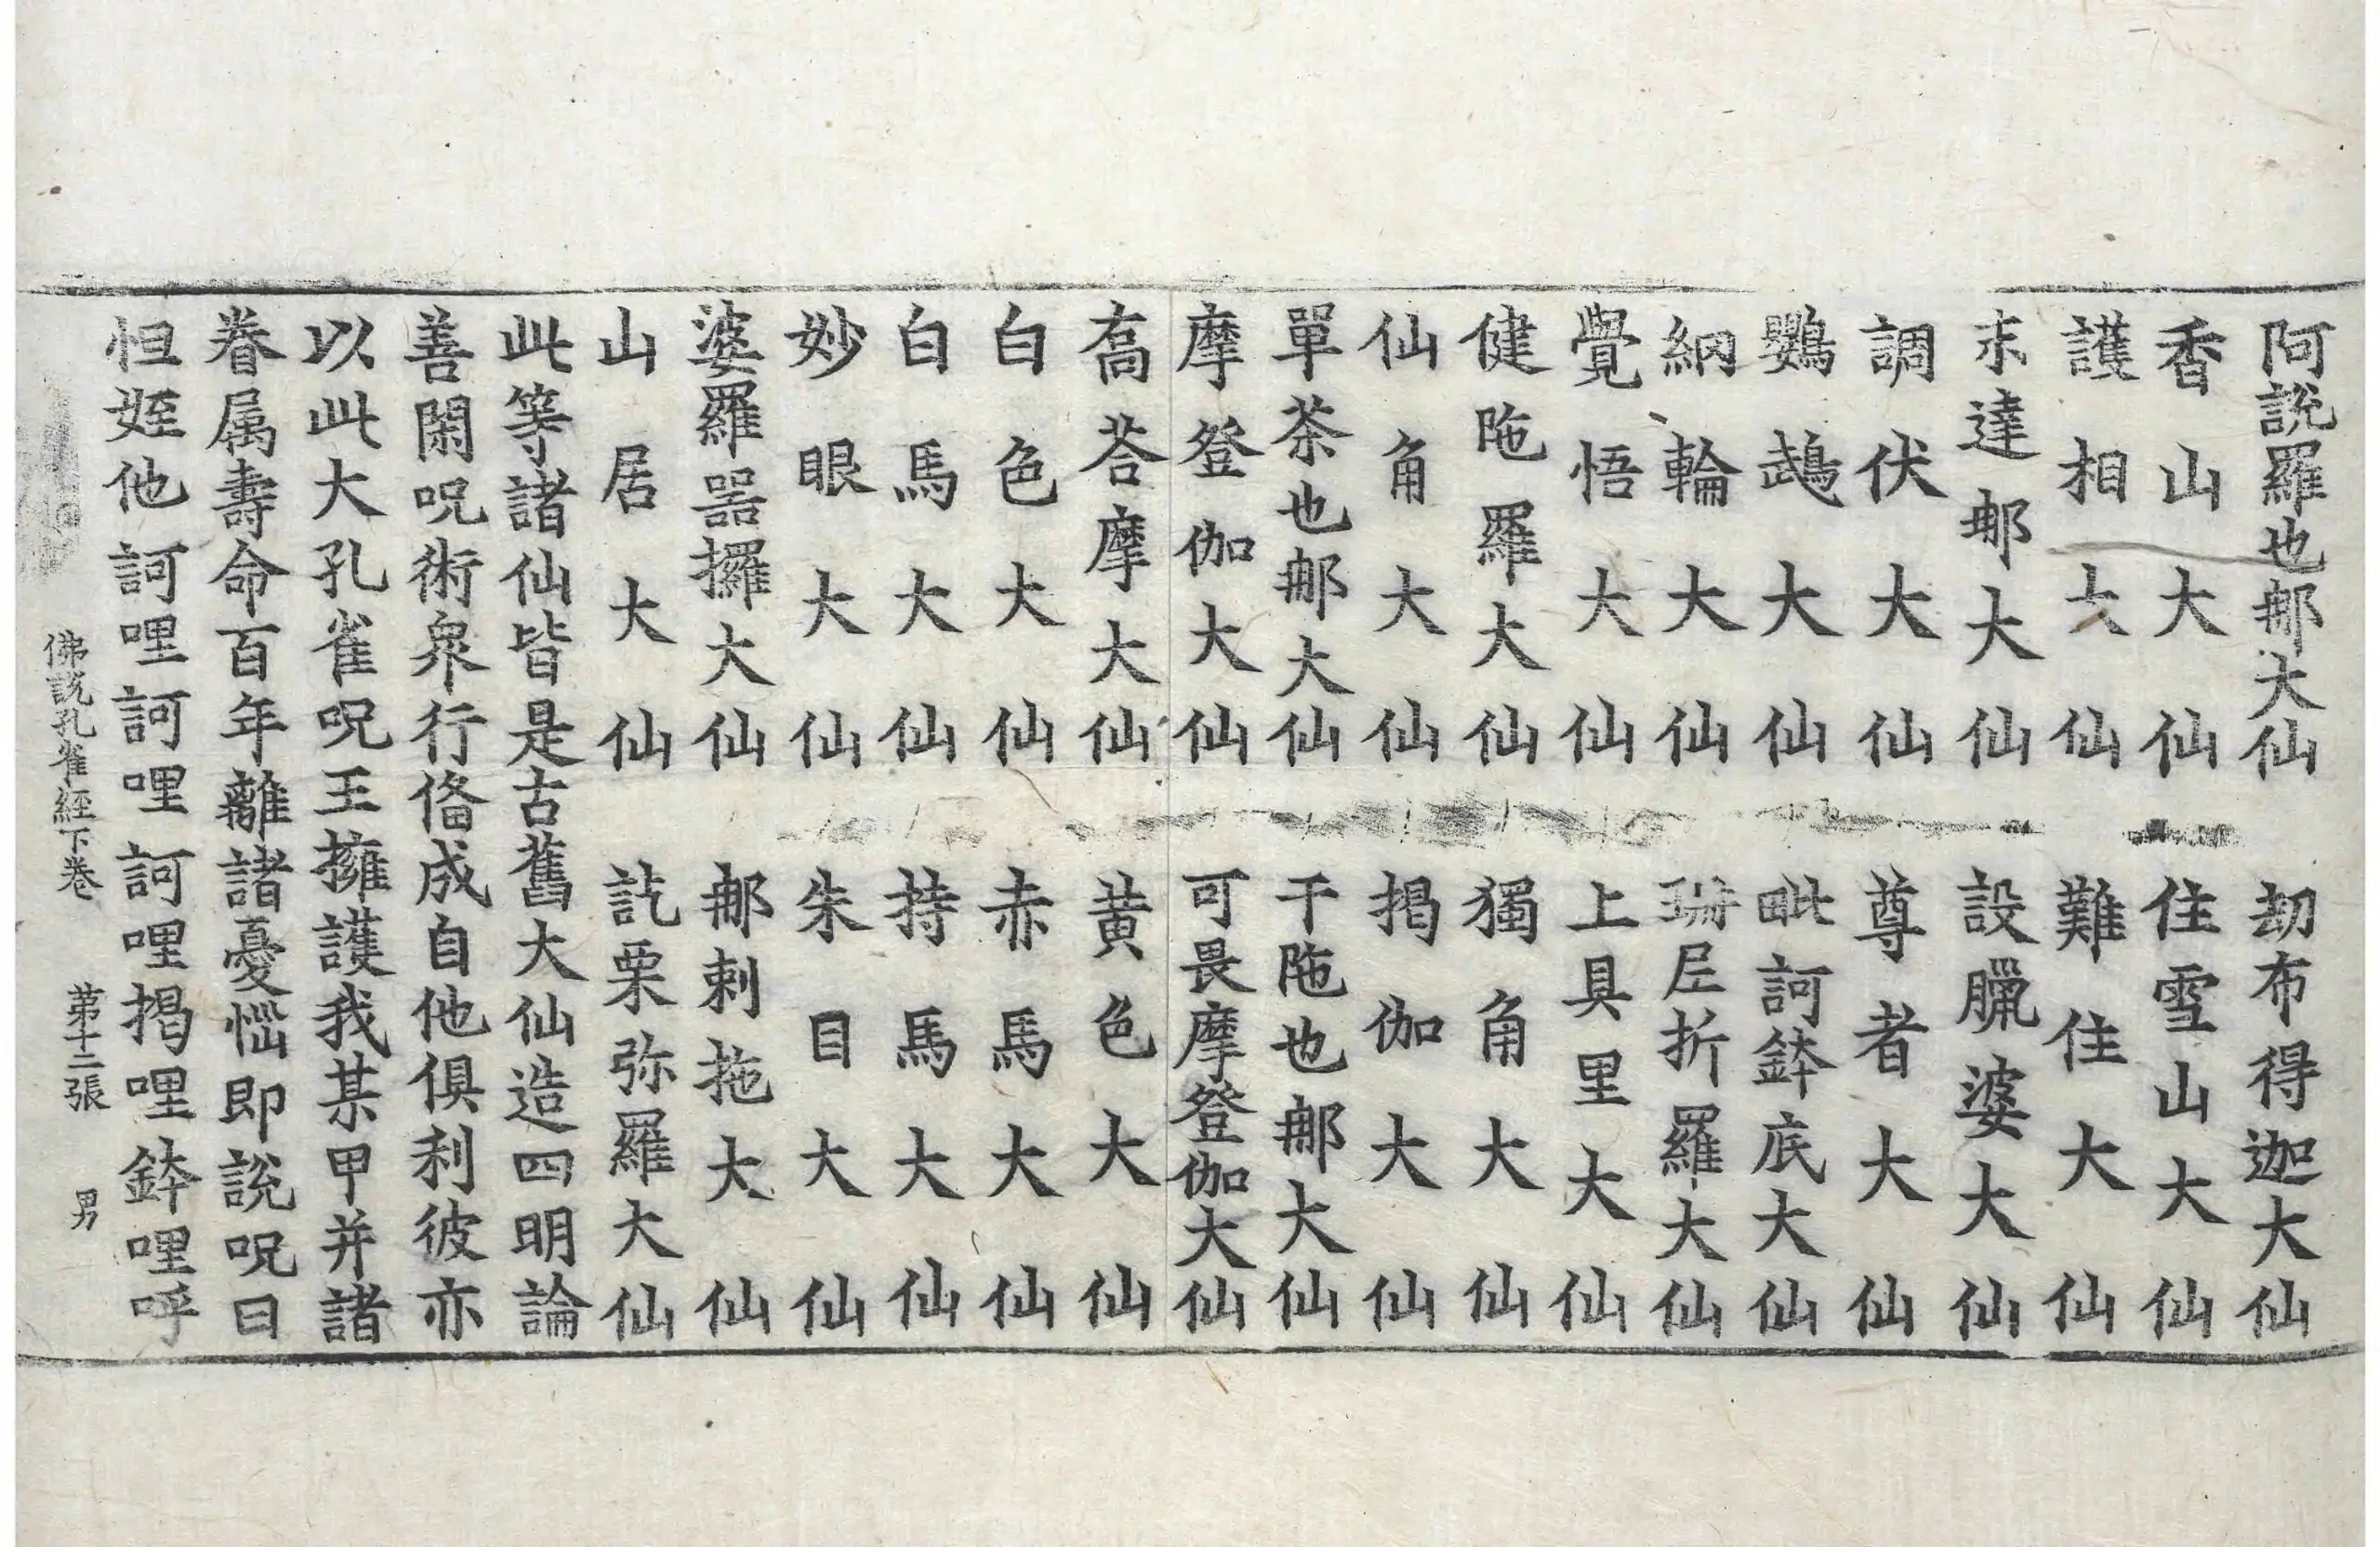 阿說羅也那大仙　劫布得迦大仙
香山大仙　住雪山大仙
護相大仙　難住大仙
末達那大仙　設臘婆大仙
調伏大仙　尊者大仙
鸚鵡大仙　毗訶鉢底大仙
納輪大仙　珊尼折羅大仙
覺悟大仙　上具里大仙
健陁羅大仙　獨角大仙
仙角大仙　揭伽大仙
單茶也那大仙　干陁也那大仙
摩登伽大仙　可畏摩登伽大仙
高荅摩大仙　黄色大仙
白色大仙　赤馬大仙
白馬大仙　持馬大仙
妙眼大仙　朱目大仙
婆羅器攞大仙　那剌拖大仙
山居大仙　訖栗弥羅大仙
此等諸仙皆是古舊大仙造四明論
善閑呪術衆行俻成自他俱利彼亦
以此大孔雀呪王擁護我某甲并諸
眷属壽命百年離諸憂惱即說呪曰
怛姪他訶哩訶哩訶哩揭哩鉢哩呼
佛說孔雀經下卷　第十二張　男